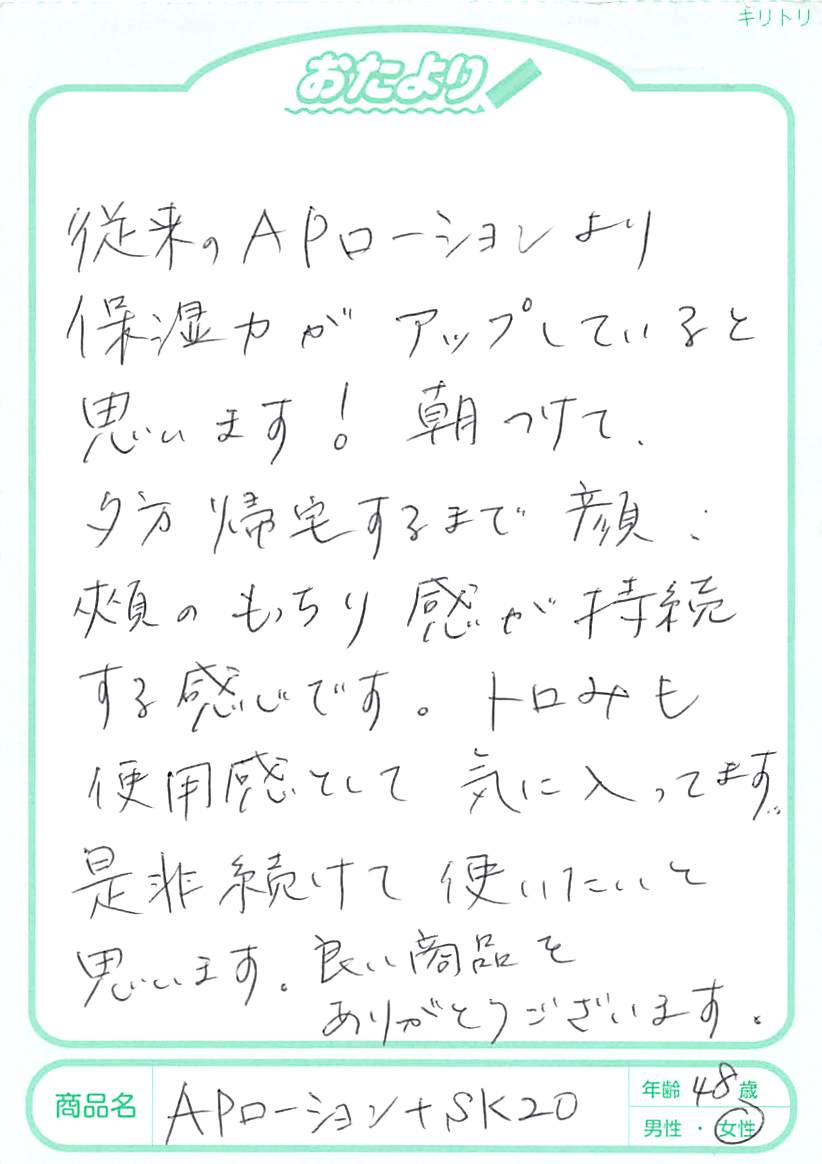 キリトリ
おたより
従来のAPローションより
保湿力が アップしていると
思います! 朝つけて、
夕方 帰宅するまで 顔:
頬の もっちり 感が 持続
する感じです。トロみも
使用感として 気に入ってます。
是非 続けて 使いたいと
思います。良い商品を
ありがとうございます。
商品名 APローション+SK20
年齢 48歳
男性・女性